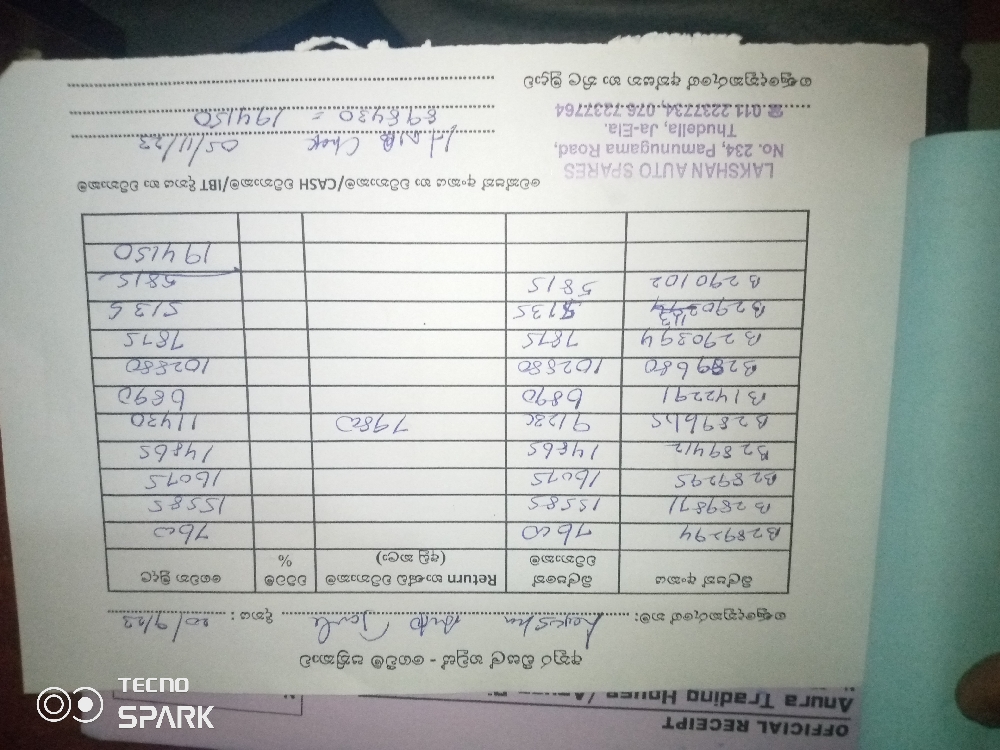 OFFICIAL RECEIPT
Anura Trading House
අනුර ඩීසල් හවුස් - ගෙවීම් පත්‍රිකාව
ගනුදෙනුකරුගේ නම: Auto දිනය : 20/9/23
බිල්පත් අංකය බිල්පතේ වටිනාකම Return භාණ්ඩ වටිනාකම (අඩු කළා) වට්ටම් % ගෙවන මුදල
B289294 7600 7600
B289871 15585 15585
B289295 16075 16075
B289412 14865 14865
B289615 91230 79800 11430
B142291 6890 6890
B289680 102880 102880
B290394 7875 7875
5135 5135
B290102 5815 5815
194150
චෙක්පත් අංකය හා වටිනාකම/CASH වටිනාකම/IBT දිනය හා වටිනාකම
LAKSHAN AUTO SPARES
No. 234, Pamunugama Road,
Thudella, Ja-Ela.
☎ 011 2237734, 076 7237764
HNB Chek 05/11/23
898430 = 194150
ගනුදෙනුකරුගේ අත්සන හා නිල මුද්‍රාව
TECNO
SPARK